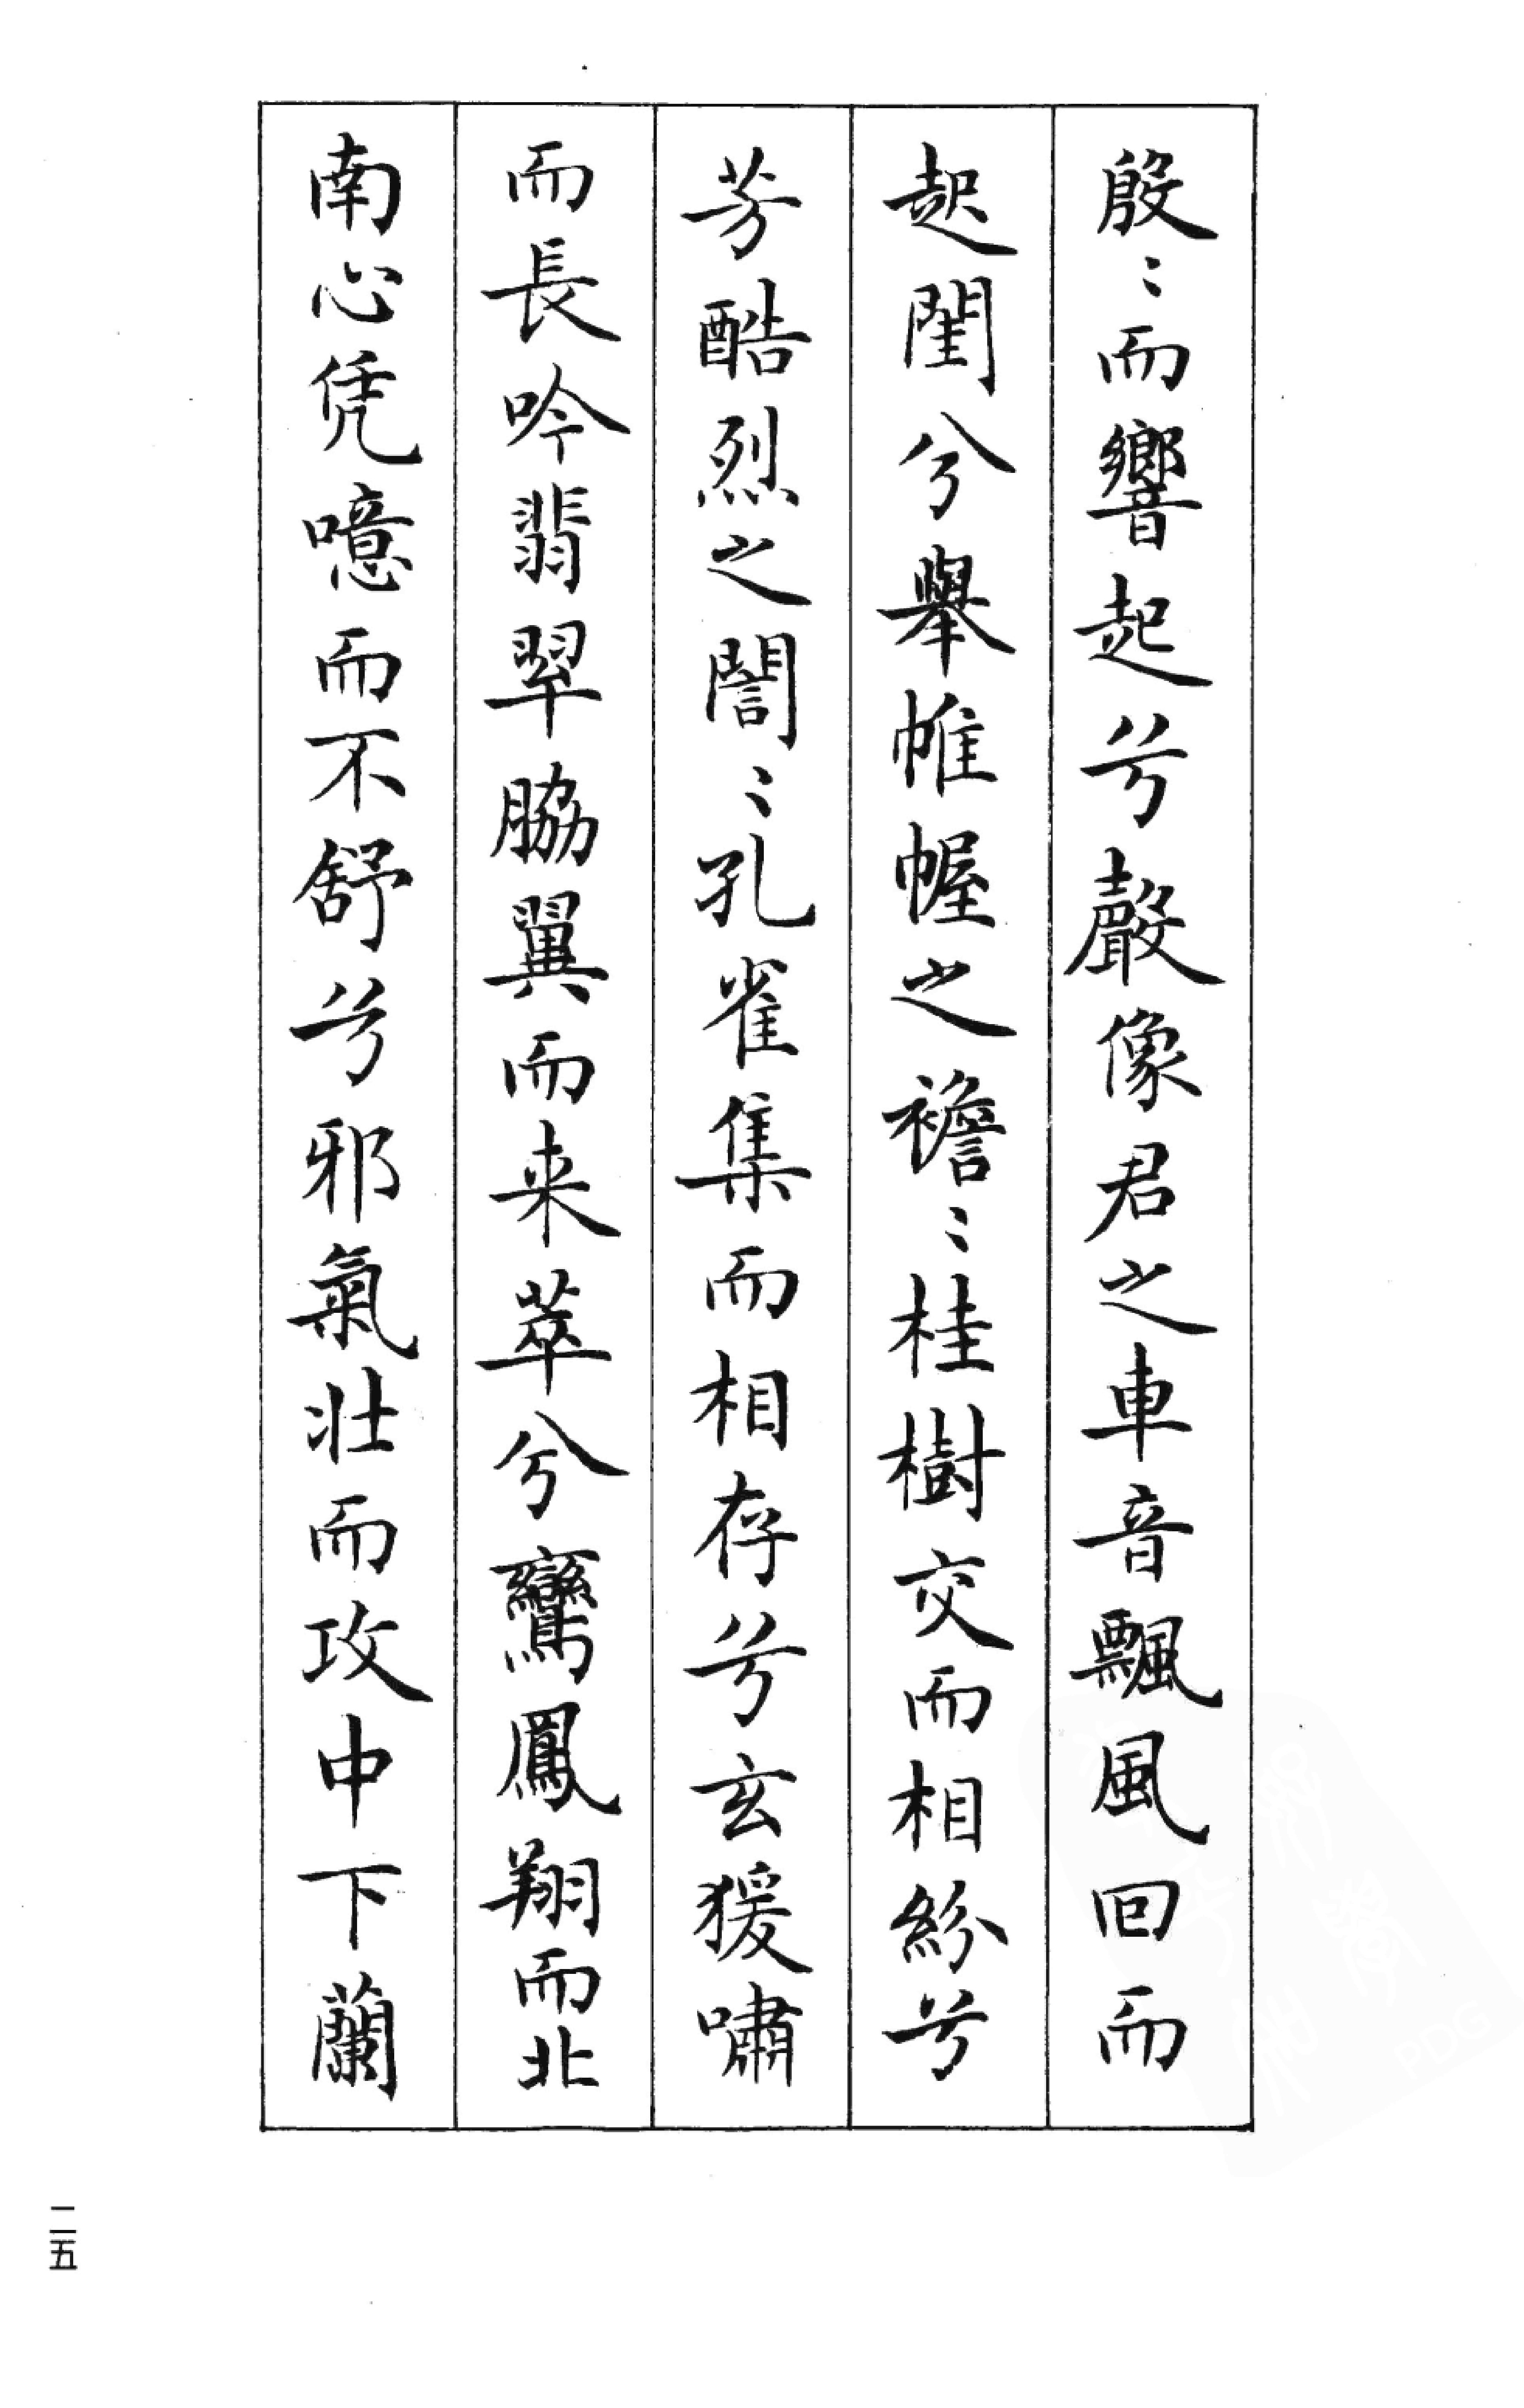 殷〻而響起兮聲像君之車音飄風回而
起閨兮舉帷幄之襜〻桂樹交而相紛兮
芳酷烈之誾〻孔雀集而相存兮玄猨嘯
而長吟翡翠脇翼而来萃兮鸞鳳翔而北
南心凭噫而不舒兮邪氣壯而攻中下蘭
二五